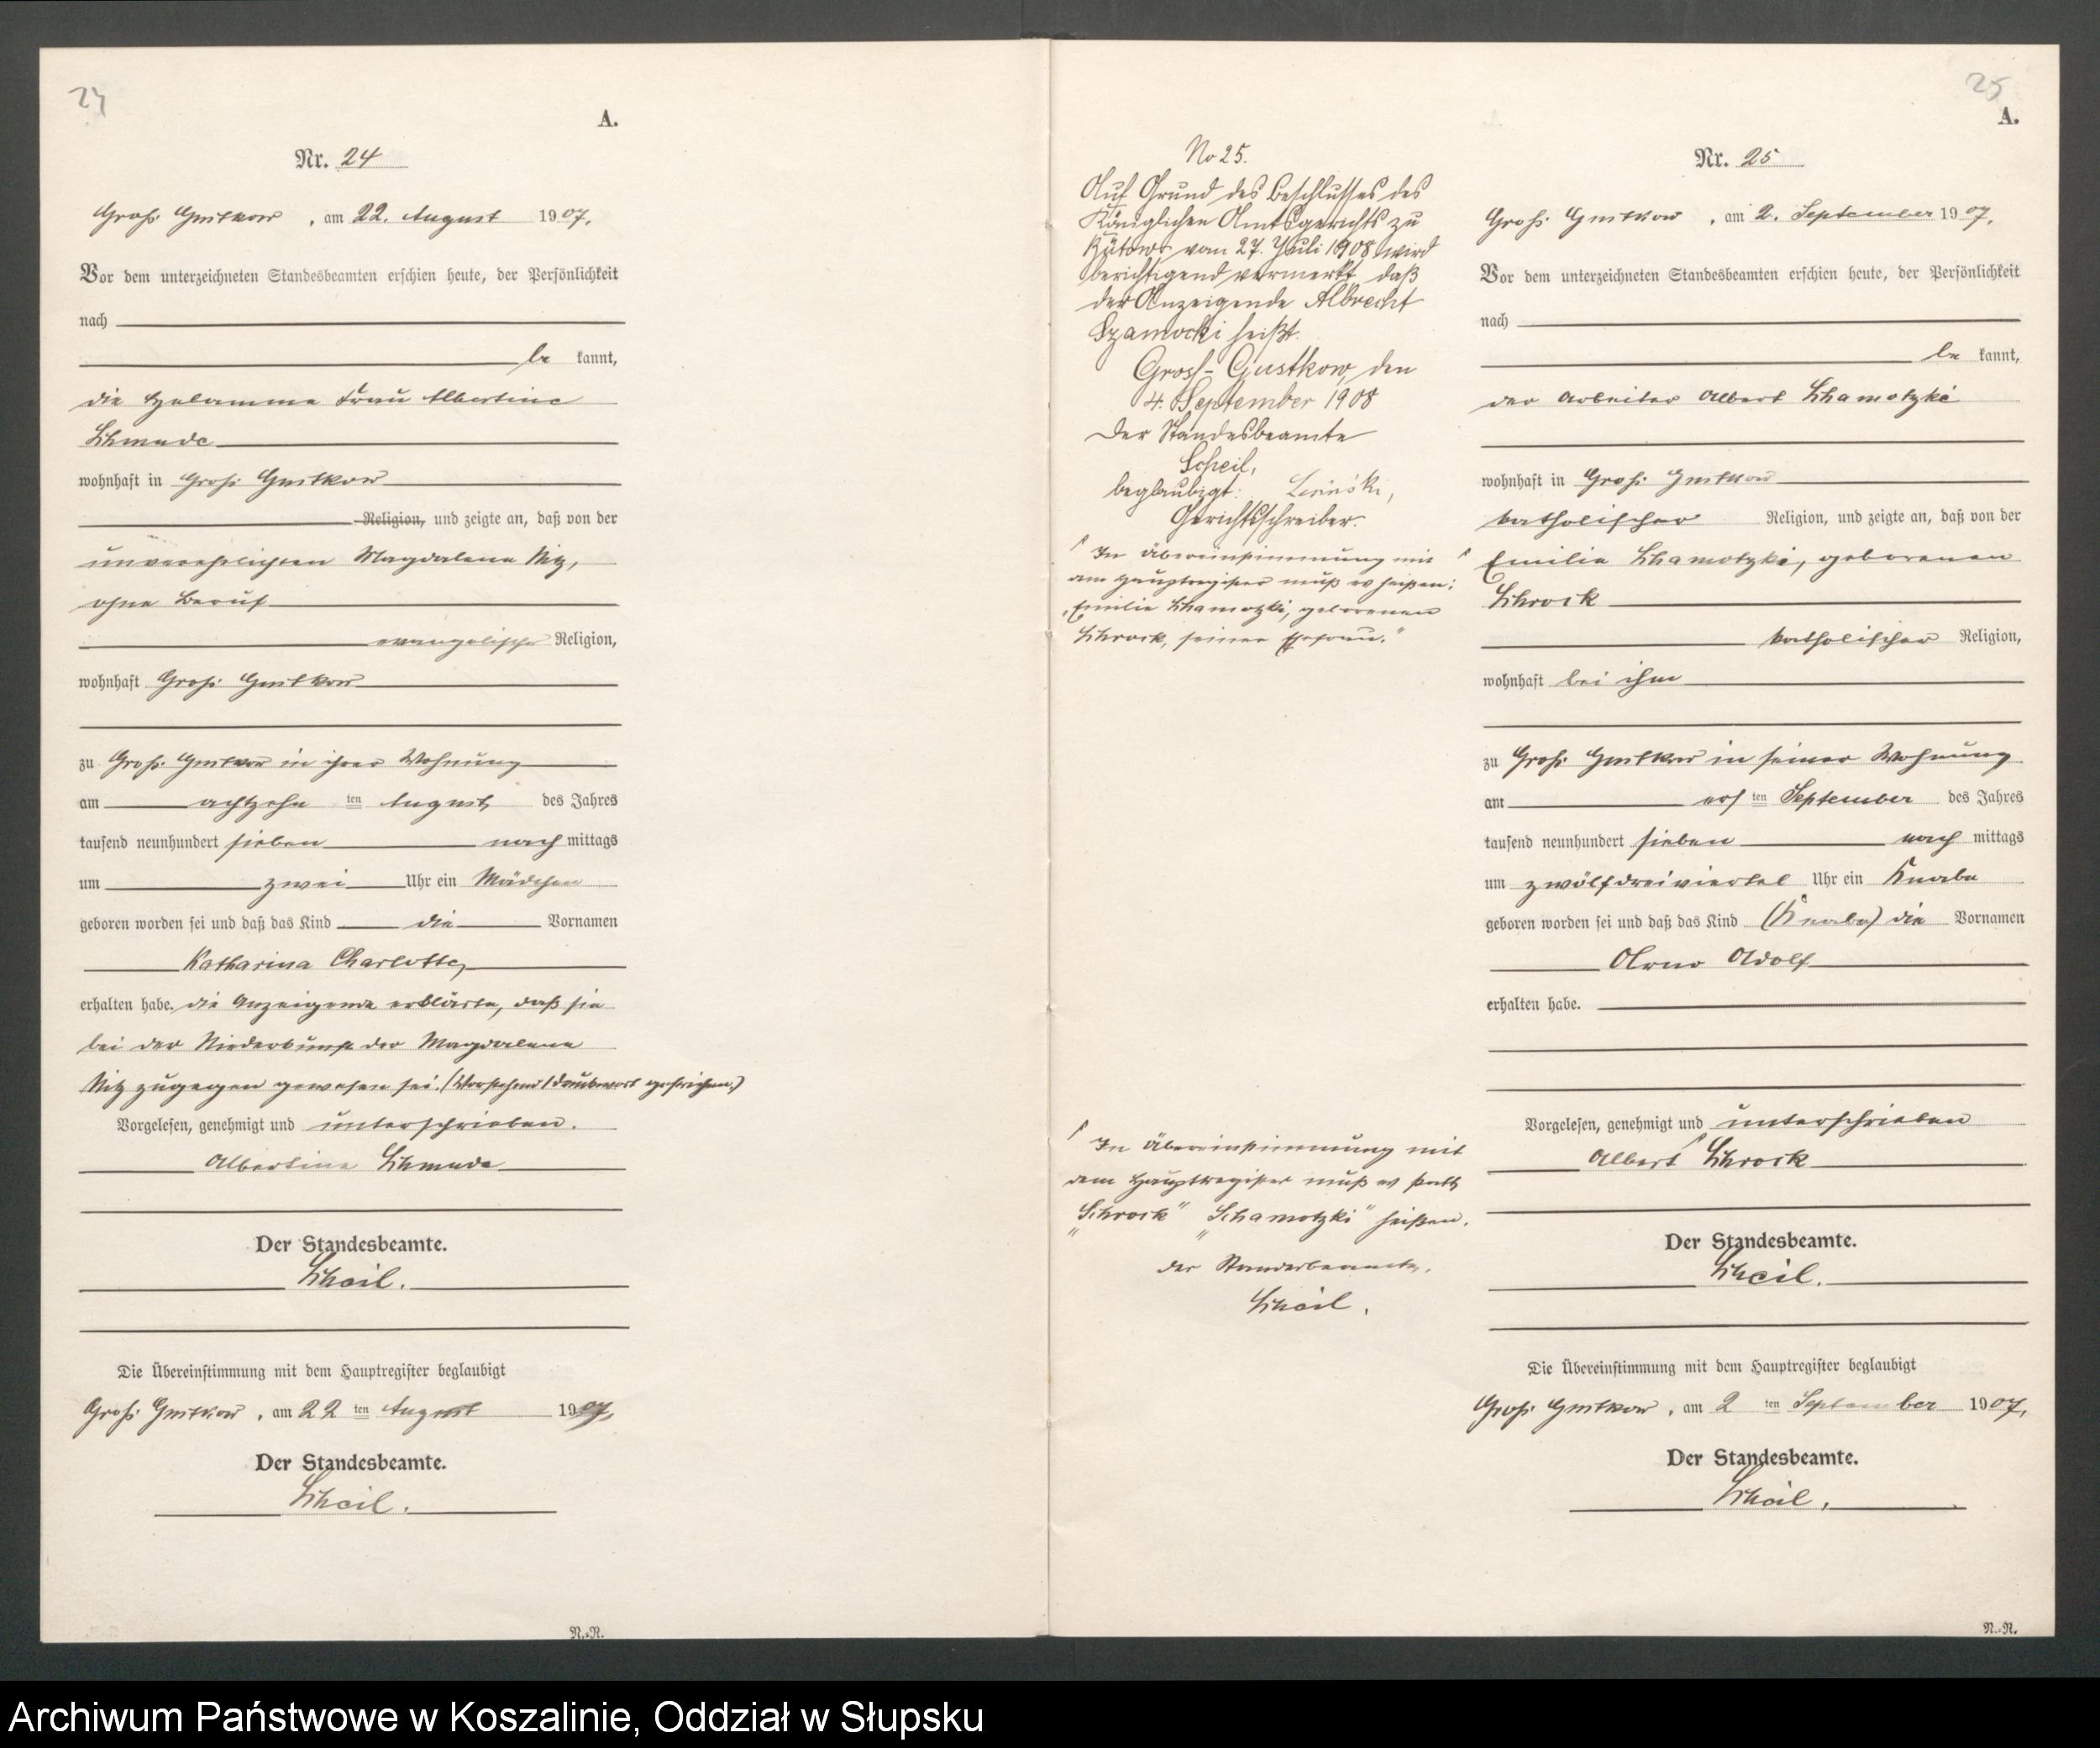 24
A.
Nr. 24
Groß Gustkow, am 22. August 1907.
Vor dem unterzeichneten Standesbeamten erschien heute, der Persönlichkeit
nach
be kannt,
die Hebamme Frau Albertine
Schmude
wohnhaft in Groß Gustkow
Religion, und zeigte an, daß von der
unverehelichten Magdalena Nitz,
ohne Beruf
evangelischer Religion,
wohnhaft Groß Gustkow
zu Groß Gustkow in ihrer Wohnung
am achtzehn ten August des Jahres
tausend neunhundert sieben nach mittags
um zwei Uhr ein Mädchen
geboren worden sei und daß das Kind die Vornamen
Katharina Charlotte
erhalten habe. Die Anzeigende erklärte, daß sie
bei der Niederkunft der Magdalena
Nitz zugegen gewesen sei. (Vorstehend 1 Druckwort gestrichen.)
Vorgelesen, genehmigt und unterschrieben.
Albertine Schmude
Der Standesbeamte.
Scheil.
Die Übereinstimmung mit dem Hauptregister beglaubigt
Groß Gustkow, am 22 ten August 1907,
Der Standesbeamte.
Scheil.
N.-R.
No 25.
Auf Grund des Beschlusses des
Königlichen Amtsgerichts zu
Bütow vom 27. Juli 1908 wird
berichtigend vermerkt daß
der Anzeigende Albrecht
Szamocki heißt.
Gross-Gustkow, den
4. September 1908
Der Standesbeamte
Scheil,
beglaubigt:
Gerichtsschreiber.
In Übereinstimmung mit
dem Hauptregister muß es heißen:
"Emilie Schamotzki, geborenen
Schrock, seiner Ehefrau."
In Übereinstimmung mit
dem Hauptregister muß es statt
"Schrock" "Schamotzki" heißen.
Der Standesbeamte.
Scheil.
25
A.
Nr. 25
Groß Gustkow, am 2. September 1907.
Vor dem unterzeichneten Standesbeamten erschien heute, der Persönlichkeit
nach
be kannt,
der Arbeiter Albert Schamotzki
wohnhaft in Groß Gustkow
katholischer Religion, und zeigte an, daß von der
Emilie Schamotzki, geborenen
Schrock
katholischer Religion,
wohnhaft bei ihm
zu Groß Gustkow in seiner Wohnung
am ers ten September des Jahres
tausend neunhundert sieben nach mittags
um zwölfdreiviertel Uhr ein Knabe
geboren worden sei und daß das Kind (Knabe) die Vornamen
Arno Adolf
erhalten habe.
Vorgelesen, genehmigt und unterschrieben
Albert Schrock
Der Standesbeamte.
Scheil.
Die Übereinstimmung mit dem Hauptregister beglaubigt
Groß Gustkow, am 2 ten September 1907,
Der Standesbeamte.
Scheil.
N.-R.
Archiwum Państwowe w Koszalinie, Oddział w Słupsku